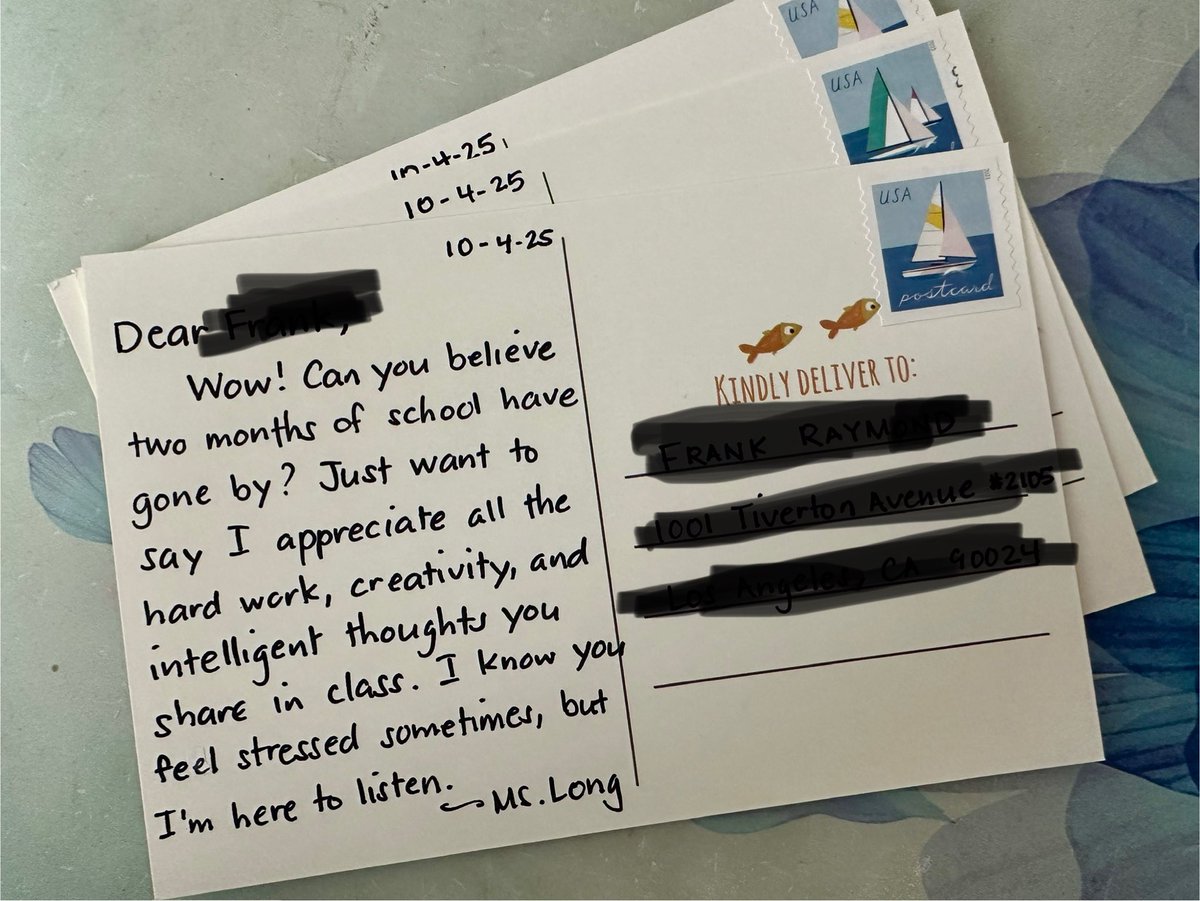 USA
USA
10-4-25
10-4-25
10-4-25
USA
postcard
Dear
Wow! Can you believe
two months of school have
gone by? Just want to
say I appreciate all the
hard work, creativity, and
intelligent thoughts you
share in class. I know you
feel stressed sometimes, but
I'm here to listen.
Ms. Long
KINDLY DELIVER TO: